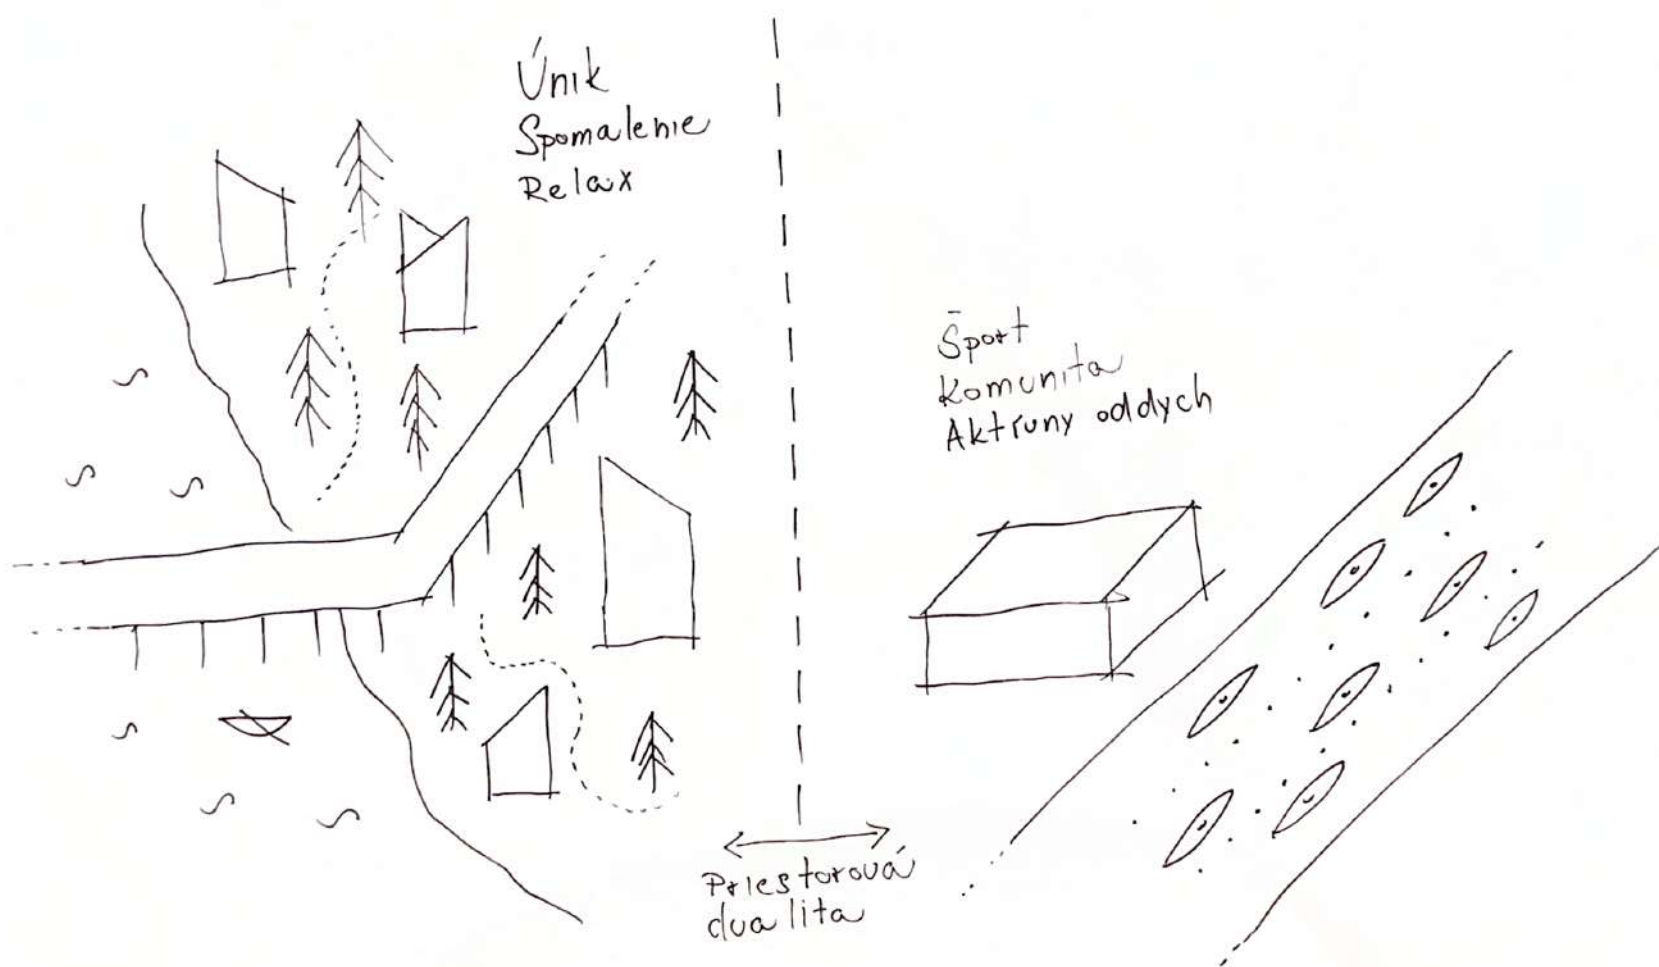 Únik
Spomalenie
Relax
Šport
Komunita
Aktívny oddych
Priestorová
dualita